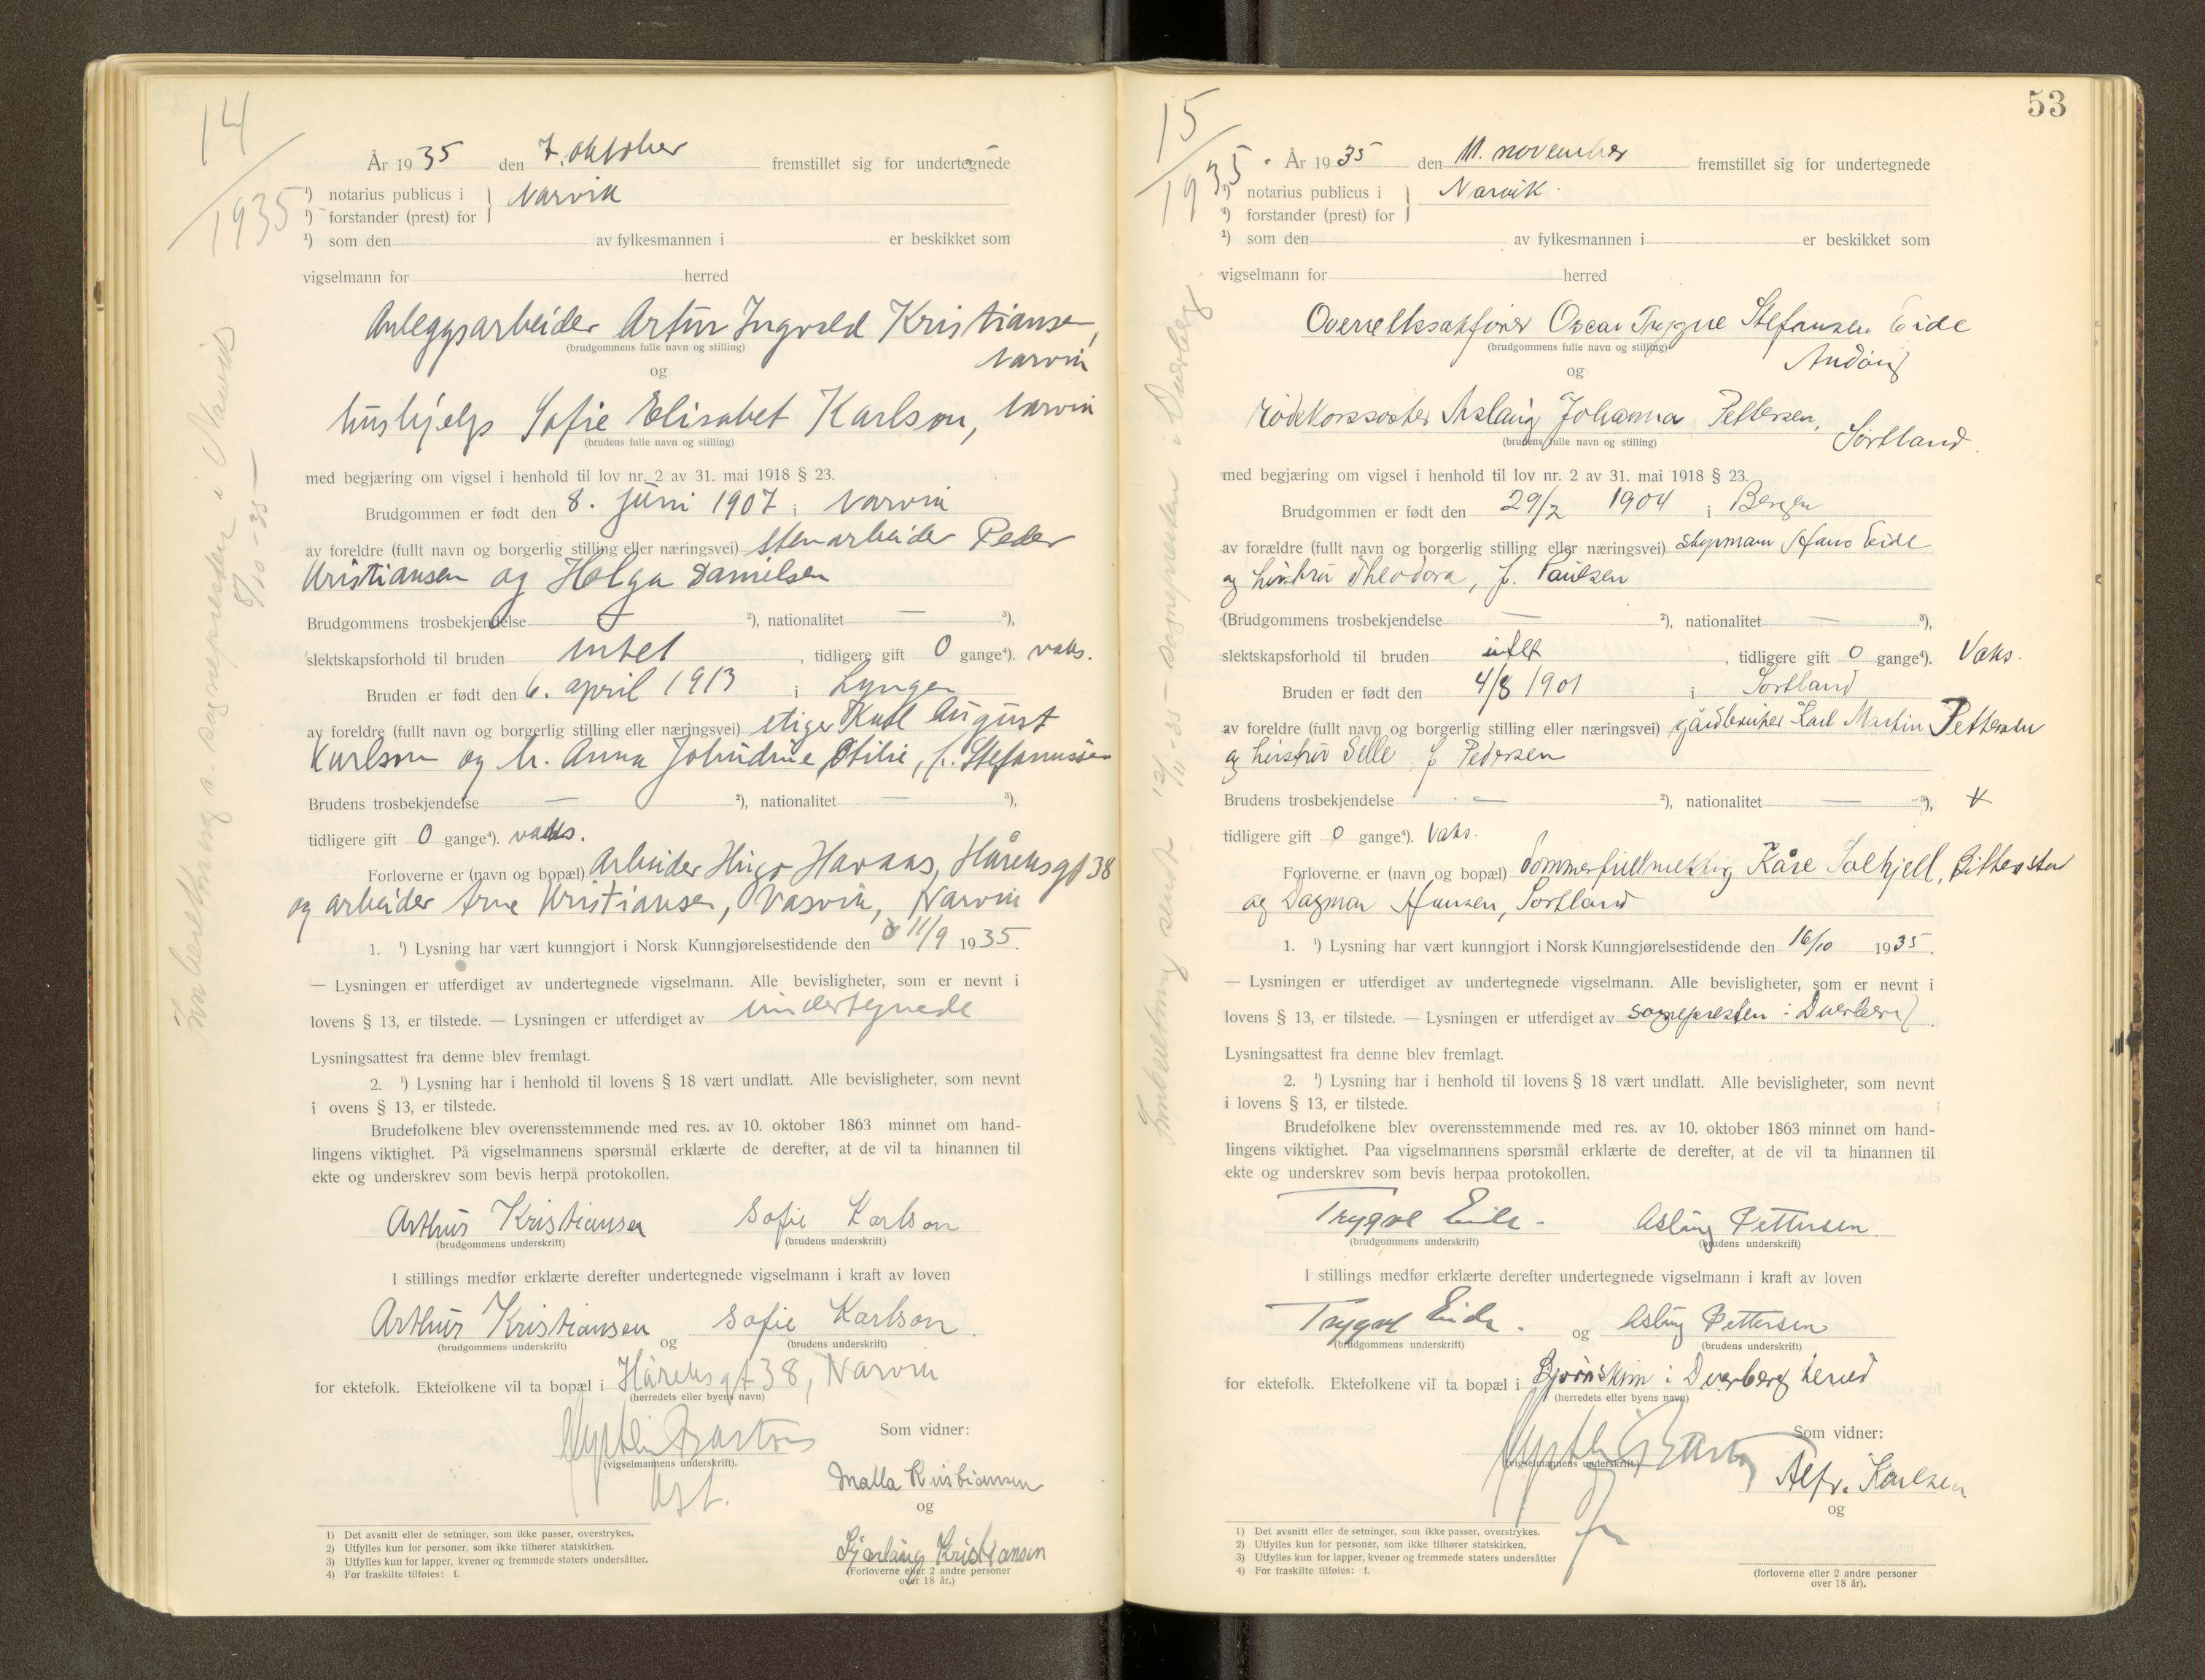 14
1935
År 1935 den 7. oktober fremstillet sig for undertegnede
¹) notarius publicus i } Narvik
¹) forstander (prest) for
¹) som den av fylkesmannen i er beskikket som
vigselmann for herred
Anleggsarbeider Artur Ingvald Kristiansen,
(brudgommens fulle navn og stilling)
Narvik
og
hushjelp Sofie Elisabet Karlson, Narvik
(brudens fulle navn og stilling)
med begjæring om vigsel i henhold til lov nr. 2 av 31. mai 1918 § 23.
Brudgommen er født den 8. juni 1907 i Narvik
av foreldre (fullt navn og borgerlig stilling eller næringsvei) stenarbeider Peder
Kristiansen og Helga Danielsen
Brudgommens trosbekjendelse — ²), nationalitet — ³),
slektskapsforhold til bruden intet, tidligere gift 0 gange⁴). vaks.
Bruden er født den 6. april 1913 i Lyngen
av foreldre (fullt navn og borgerlig stilling eller næringsvei) Karl August
Karlson og h. Anna Otilie, f. Stefanussen
Brudens trosbekjendelse — ²), nationalitet — ³),
tidligere gift 0 gange⁴). vaks.
Forloverne er (navn og bopæl) Arbeider Hugo Havaas, Håreksgt 38
og arbeider Arne Kristiansen, Narvik
1. ¹) Lysning har vært kunngjort i Norsk Kunngjørelsestidende den 11/9 1935.
— Lysningen er utferdiget av undertegnede vigselmann. Alle bevisligheter, som er nevnt i
lovens § 13, er tilstede. — Lysningen er utferdiget av undertegnede
Lysningsattest fra denne blev fremlagt.
2. ¹) Lysning har i henhold til lovens § 18 vært undlatt. Alle bevisligheter, som nevnt
i ovens § 13, er tilstede.
Brudefolkene blev overensstemmende med res. av 10. oktober 1863 minnet om hand-
lingens viktighet. På vigselmannens spørsmål erklærte de derefter, at de vil ta hinannen til
ekte og underskrev som bevis herpå protokollen.
Arthur Kristiansen Sofie Karlson
(brudgommens underskrift) (brudens underskrift)
I stillings medfør erklærte derefter undertegnede vigselmann i kraft av loven
Arthur Kristiansen og Sofie Karlson
(brudgommens underskrift) (brudens underskrift)
for ektefolk. Ektefolkene vil ta bopæl i Håreksgt 38, Narvik
(herredets eller byens navn)
Som vidner:
(vigselmannens underskrift).
Malla Kristiansen
og
Kristiansen
(Forloverne eller 2 andre personer
over 18 år.)
1) Det avsnitt eller de setninger, som ikke passer, overstrykes.
2) Utfylles kun for personer, som ikke tilhører statskirken.
3) Utfylles kun for lapper, kvener og fremmede staters undersåtter.
4) For fraskilte tilføies: f.
Innberetning s. sognepresten i Narvik
8/10-35 —
53
15
1935
År 1935 den 11. november fremstillet sig for undertegnede
¹) notarius publicus i } Narvik.
²) forstander (prest) for
¹) som den av fylkesmannen i er beskikket som
vigselmann for herred
Overrettssakfører Oscar Trygve Stefansen Eide
(brudgommens fulle navn og stilling)
Andøy
og
rødekorssøster Aslaug Johanna Pettersen,
Sortland.
(brudens fulle navn og stilling)
med begjæring om vigsel i henhold til lov nr. 2 av 31. mai 1918 § 23.
Brudgommen er født den 29/2 1904 i Bergen
av forældre (fullt navn og borgerlig stilling eller næringsvei) styrmann Hans Eide
og hustru Theodora, f. Paulsen
(Brudgommens trosbekjendelse — ²), nationalitet — ³),
slektskapsforhold til bruden intet, tidligere gift 0 gange⁴). Vaks.
Bruden er født den 4/8 1901 i Sortland
av foreldre (fullt navn og borgerlig stilling eller næringsvei) gårdbruker Karl Martin Pettersen
og hustru Selle f. Pedersen
Brudens trosbekjendelse — ²), nationalitet — ³),
tidligere gift 0 gange⁴). Vaks.
Forloverne er (navn og bopæl) Kåre Solhjell,
og Dagmar Hansen, Sortland
1. ¹) Lysning har vært kunngjort i Norsk Kunngjørelsestidende den 16/10 1935.
— Lysningen er utferdiget av undertegnede vigselmann. Alle bevisligheter, som er nevnt i
lovens § 13, er tilstede. — Lysningen er utferdiget av sognepresten i Dverberg.
Lysningsattest fra denne blev fremlagt.
2. ¹) Lysning har i henhold til lovens § 18 vært undlatt. Alle bevisligheter, som nevnt
i lovens § 13, er tilstede.
Brudefolkene blev overensstemmende med res. av 10. oktober 1863 minnet om hand-
lingens viktighet. Paa vigselmannens spørsmål erklærte de derefter, at de vil ta hinannen til
ekte og underskrev som bevis herpaa protokollen.
Trygve Eide. Aslaug Pettersen
(brudgommens underskrift) (brudens underskrift)
I stillings medfør erklærte derefter undertegnede vigselmann i kraft av loven
Trygve Eide. og Aslaug Pettersen
(brudgommens underskrift) (brudens underskrift)
for ektefolk. Ektefolkene vil ta bopæl i Bjørnskinn i Dverberg herred
(herredets eller byens navn)
Som vidner:
(vigselmannens underskrift.)
Alfr. Karlsen
og
(forloverne eller 2 andre personer
over 18 år).
1) Det avsnitt eller de setninger, som ikke passer, overstrykes.
2) Utfylles kun for personer, som ikke tilhører statskirken.
3) Utfylles kun for lapper, kvener og fremmede staters undersåtter
4) For fraskilte tilføies: f.
Innberetning sendt 12/11-35 — sognepresten i Dverberg